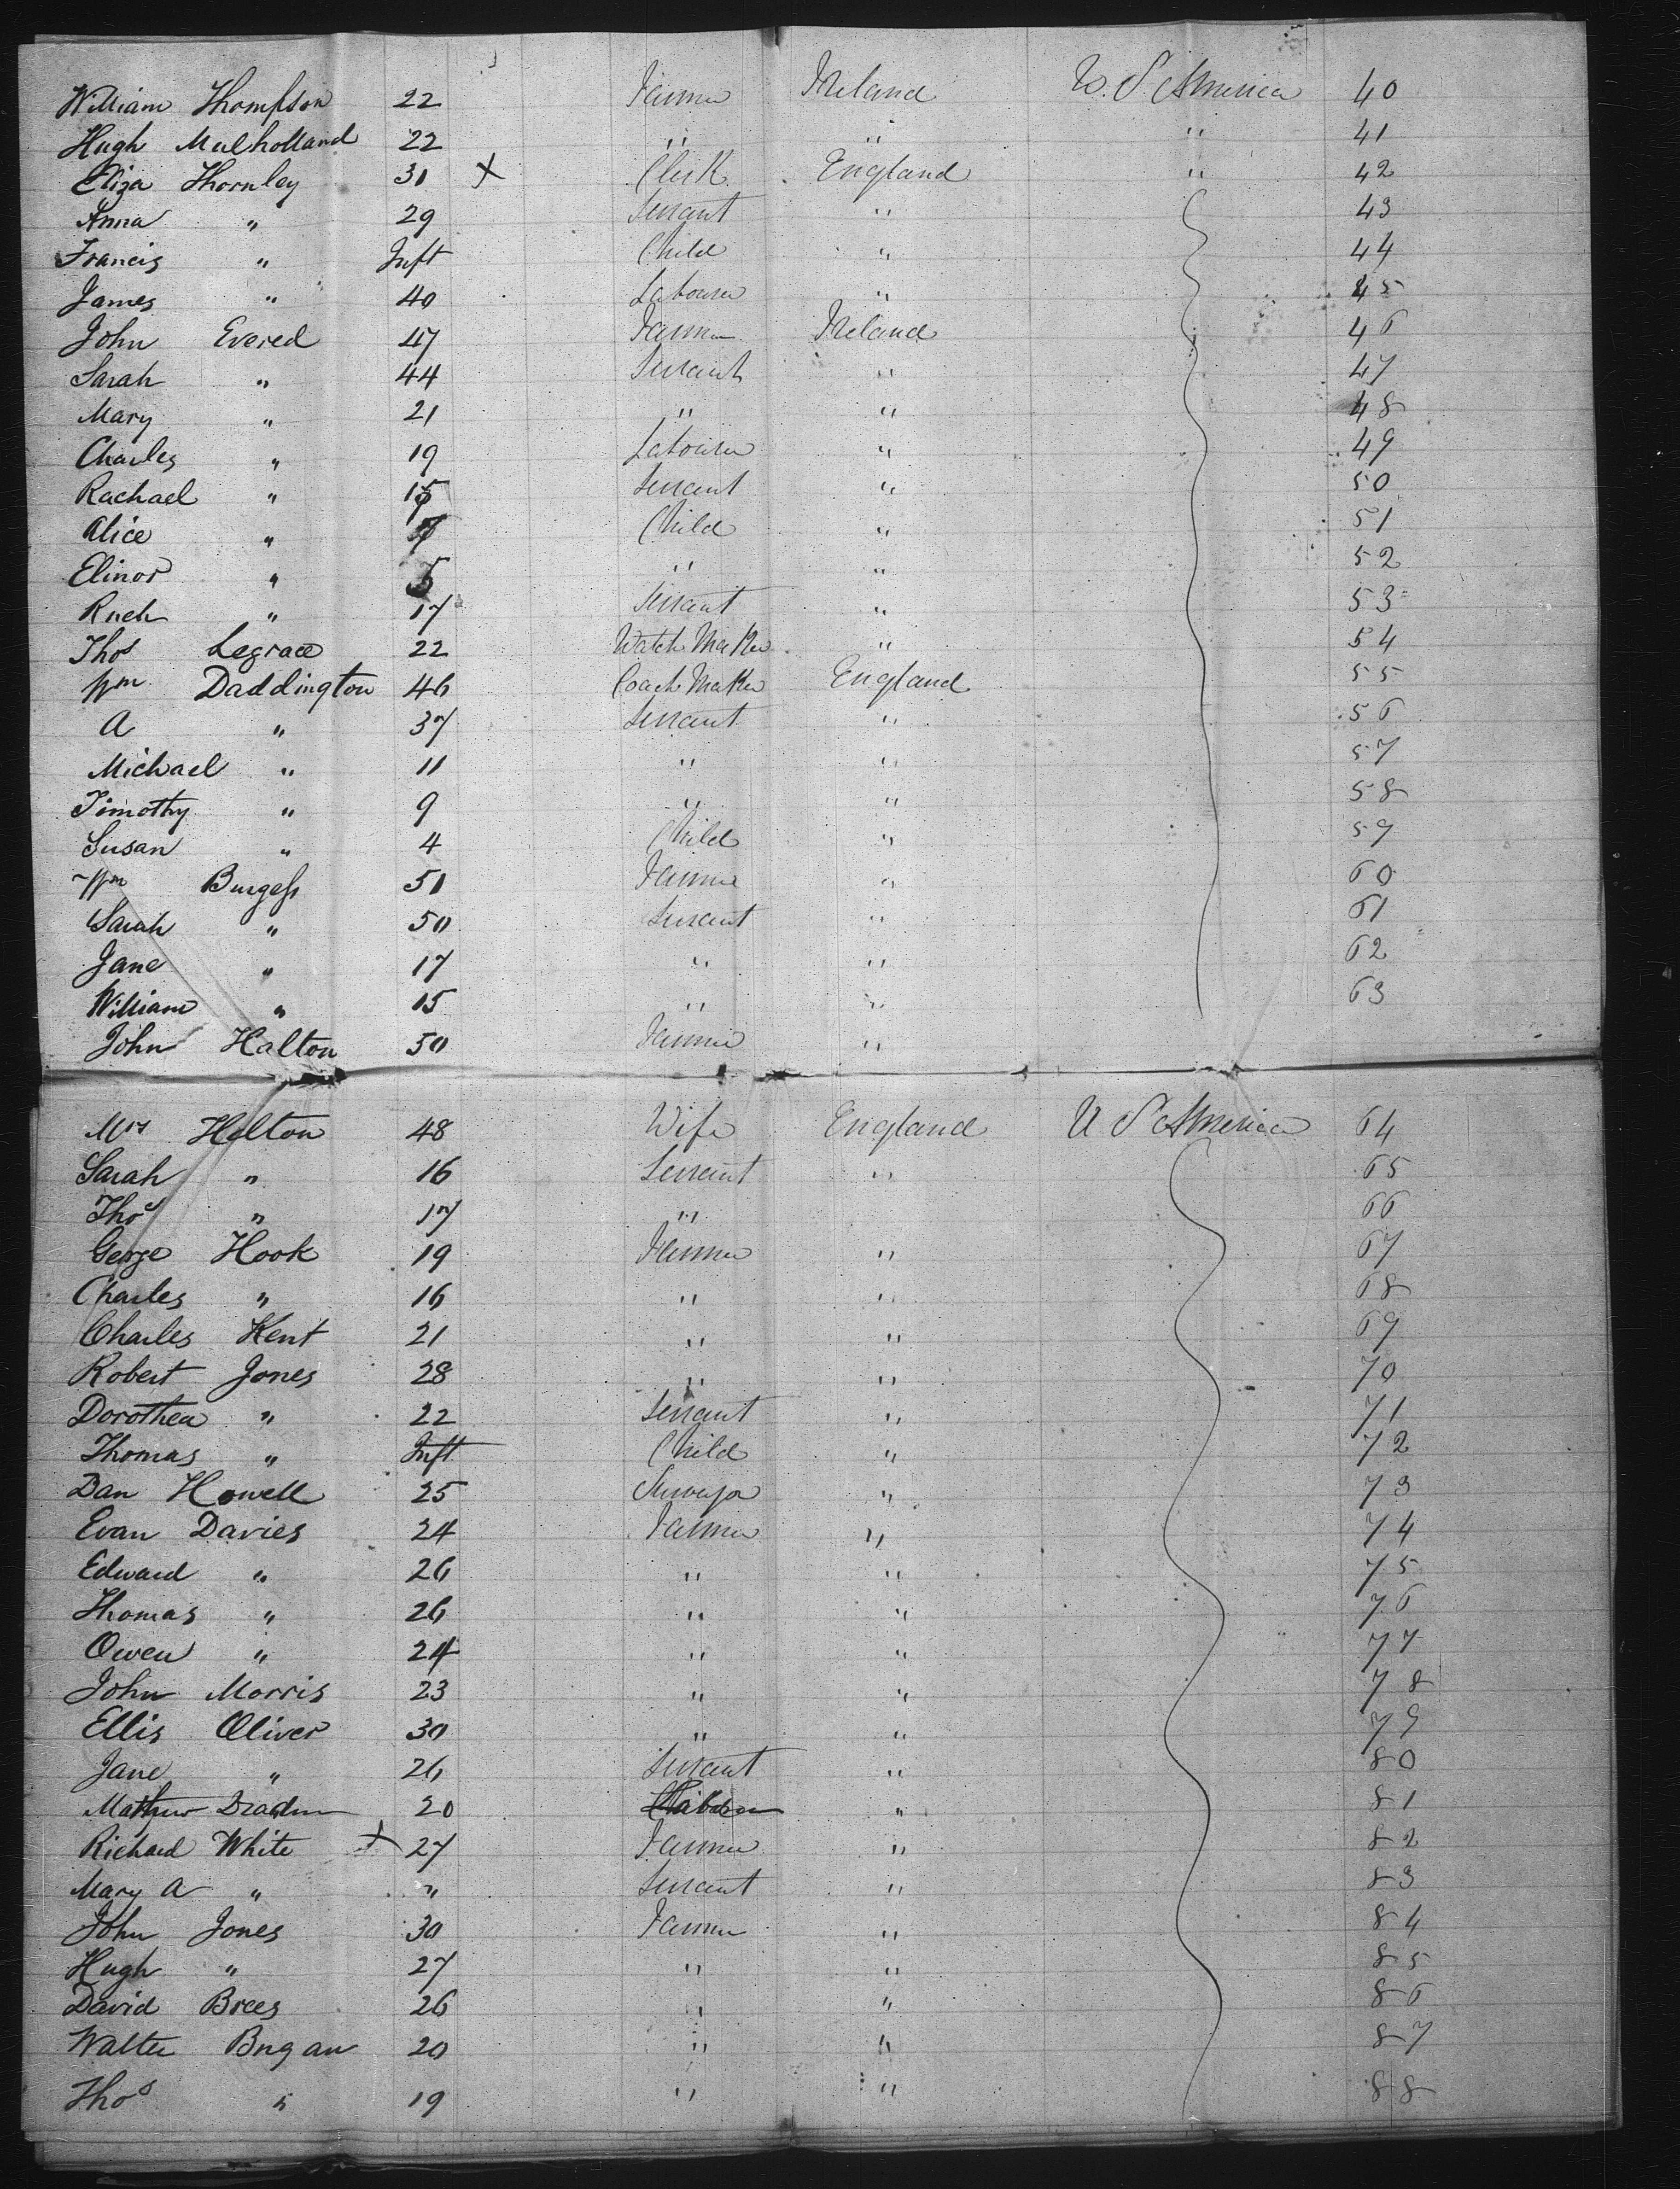 William Thompson 22 Farmer Ireland U. S. America 40
Hugh Mulholland 22 " " " 41
Eliza Thornley 31 X Clerk England " 42
Anna " 29 Servant " 43
Francis " Inft Child " 44
James " 40 Labourer " 45
John Evered 47 Farmer Ireland 46
Sarah " 44 Servant " 47
Mary " 21 " " 48
Charles " 19 Labourer " 49
Rachael " 15 Servant " 50
Alice " Child " 51
Elinor " 5 " " 52
Rueh " 17 Servant " 53
Thos Legrace 22 Watch Maker " 54
Wm Daddington 46 Coach Maker England 55
A " 37 Servant " 56
Michael " 11 " " 57
Timothy " 9 " " 58
Susan " 4 Child " 59
Wm Burgess 51 Farmer " 60
Sarah " 50 Servant " 61
Jane " 17 " " 62
William " 15 " " 63
John Halton 50 Farmer "
Mrs Halton 48 Wife England U S America 64
Sarah " 16 Servant " 65
Thos " 17 " 66
George Hook 19 Farmer " 67
Charles " 16 " " 68
Charles Kent 21 " " 69
Robert Jones 28 " " 70
Dorothea " 22 Servant " 71
Thomas " Inft Child " 72
Dan Howell 25 Surveyor " 73
Evan Davies 24 Farmer " 74
Edward " 26 " " 75
Thomas " 26 " " 76
Owen " 24 " " 77
John Morris 23 " " 78
Ellis Oliver 30 " " 79
Jane " 26 Servant " 80
Mathew 20 " 81
Richard White X 27 Farmer " 82
Mary A " " Servant " 83
John Jones 30 Farmer " 84
Hugh " 27 " " 85
David Brees 26 " " 86
Walter Bngan 20 " " 87
Thos " 19 " " 88